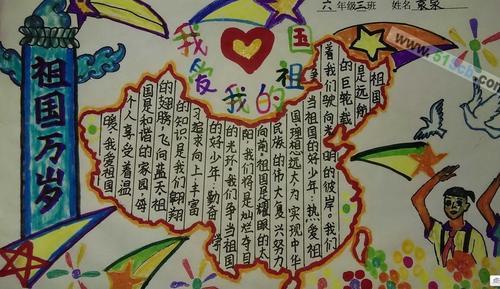 六年级三班 姓名
祖国万岁
我爱我的祖国
祖国
是远航
的巨轮载
着我们驶向光明的彼岸。我们
争当祖国的好少年：热爱祖
国理想远大为实现中华
民族的伟大复兴努力
向前。祖国是耀眼的太
阳，我们将是灿烂夺目
的光环。我们争当祖国
的好少年：勤奋
学
习追求向上丰富
的知识是我们翱翔
的翅膀，飞向蓝天祖
国是和谐的家园，每
个人享受着温
暖，我爱祖国